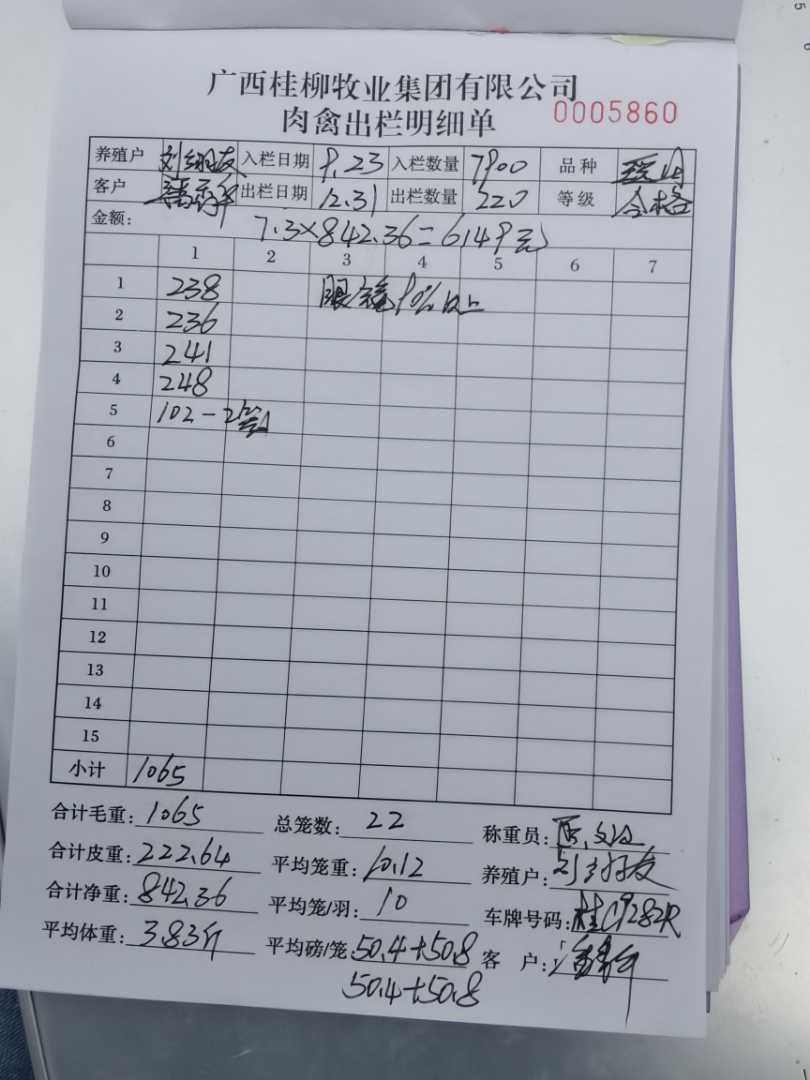 广西桂柳牧业集团有限公司
肉禽出栏明细单 0005860
养殖户 入栏日期 9.23 入栏数量 7900 品种
客户 出栏日期 12.31 出栏数量 220 等级 合格
金额: 7.3×842.36=6149元
1 2 3 4 5 6 7
1 238 90%以上
2 236
3 241
4 248
5 102-2笼
6
7
8
9
10
11
12
13
14
15
小计 1065
合计毛重: 1065 总笼数: 22 称重员:
合计皮重: 222.64 平均笼重: 10.12 养殖户:
合计净重: 842.36 平均笼/羽: 10 车牌号码: 桂C9282R
平均体重: 3.83斤 平均磅/笼: 50.4+50.8 客户:
50.4+50.8